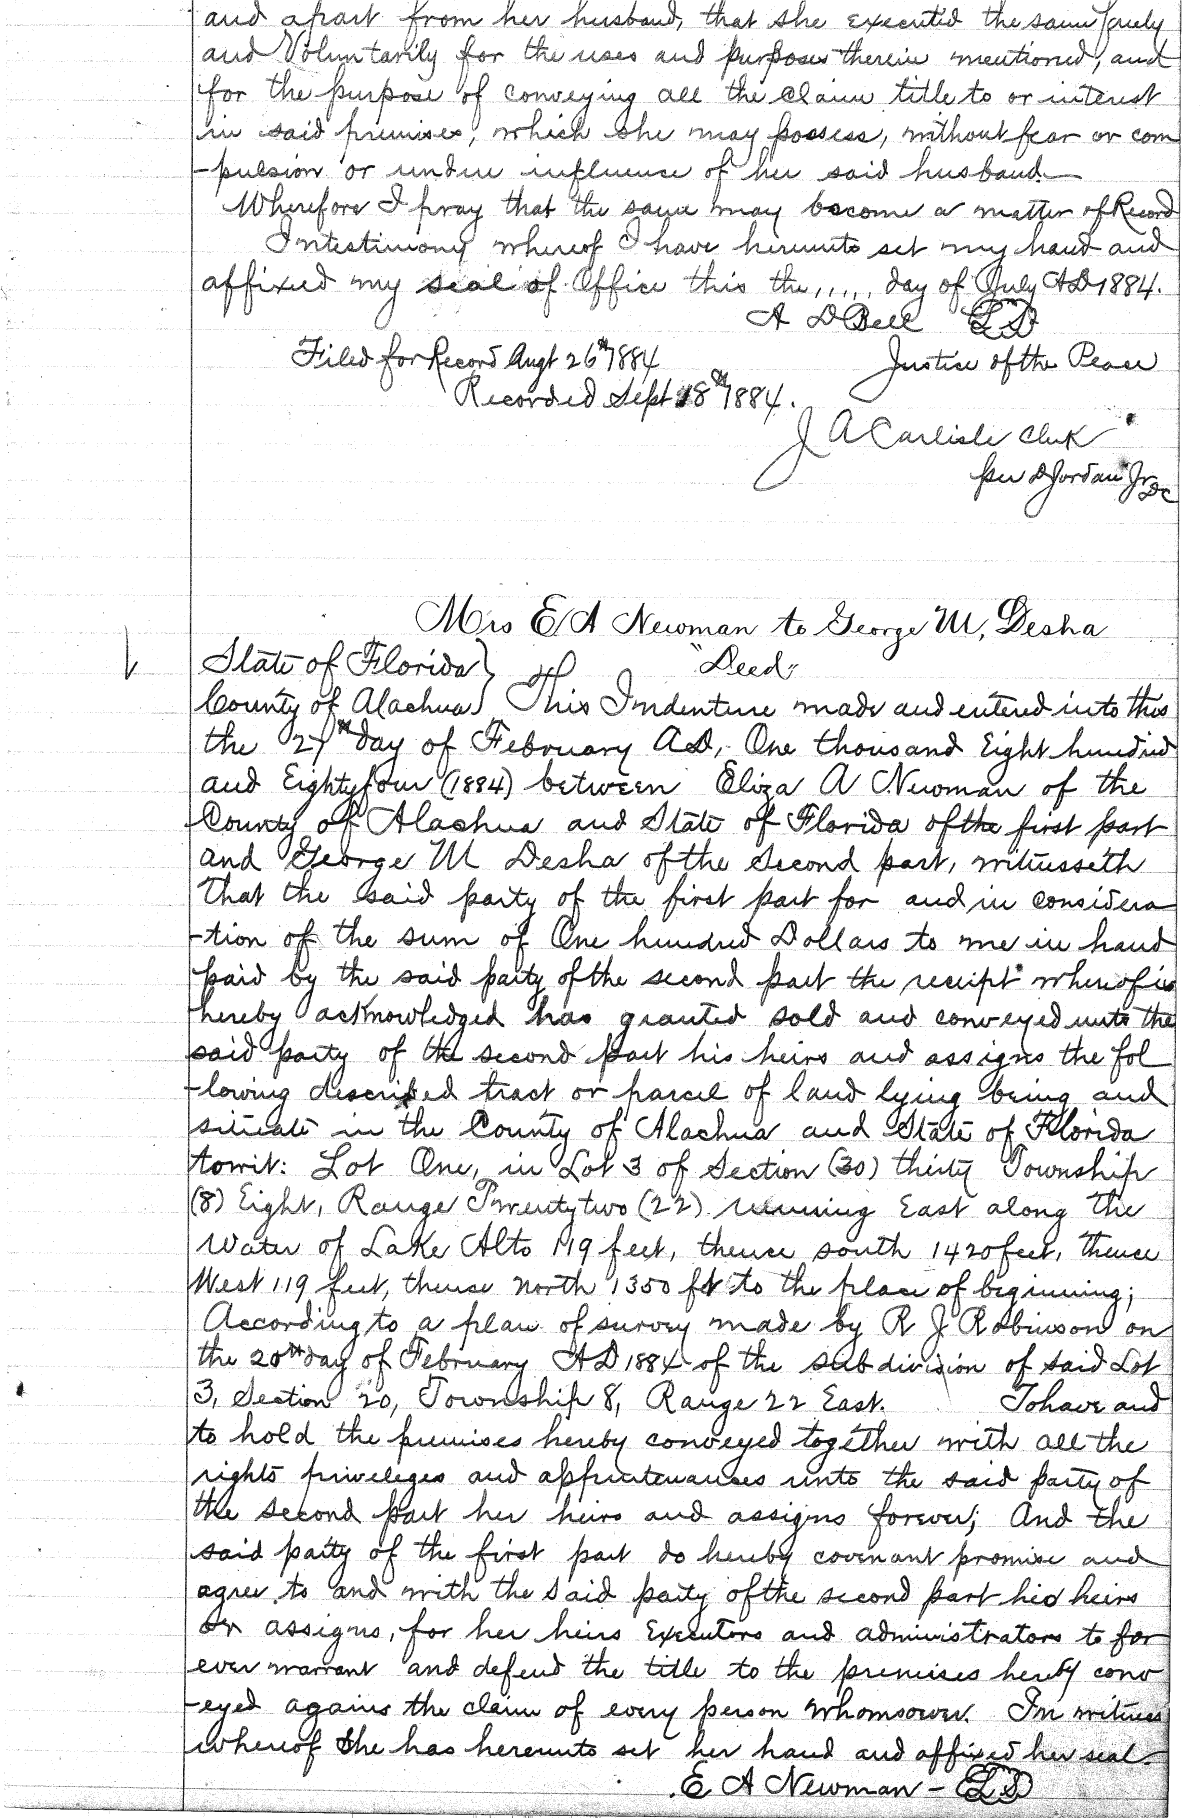 and apart from her husband, that she executed the same freely
and Voluntarily for the uses and purposes therein mentioned, and
for the purpose of conveying all the claim title to or interest
in said premises, which she may possess, without fear or com
-pulsion or undue influence of her said husband.—
Wherefore I pray that the same may become a matter of Record
In testimony whereof I have hereunto set my hand and
affixed my seal of Office this the ..... day of July AD 1884.
A D Bell LS
Filed for Record Augt 26th 1884
Justice of the Peace
Recorded Sept 18th 1884.
J A Carlisle Clerk
per D Jordan Jr DC
Mrs E A Newman to George M, Desha
State of Florida } "Deed"
County of Alachua } This Indenture made and entered into this
the 27th day of February AD, One thousand Eight hundred
and Eightyfour (1884) between Eliza A Newman of the
County of Alachua and State of Florida of the first part
and George M Desha of the Second part, witnesseth
that the said party of the first part for and in considera
-tion of the sum of One hundred Dollars to me in hand
paid by the said party of the second part the receipt whereof is
hereby acknowledged has granted sold and conveyed unto the
said party of the second part his heirs and assigns the fol
-lowing described tract or parcel of land lying being and
situate in the County of Alachua and State of Florida
towit: Lot One, in Lot 3 of Section (30) thirty Township
(8) Eight, Range Twentytwo (22) running East along the
Water of Lake Alto 119 feet, thence south 1420 feet, thence
West 119 feet, thence north 1350 ft to the place of beginning;
According to a plan of survey made by R J Robinson on
the 20th day of February AD 1884 of the subdivision of said Lot
3, Section 20, Township 8, Range 22 East. To have and
to hold the premises hereby conveyed together with all the
rights privileges and appurtenances unto the said party of
the second part her heirs and assigns forever; And the
said party of the first part do hereby covenant promise and
agree to and with the said party of the second part his heirs
or assigns, for her heirs Executors and administrators to for
ever warrant and defend the title to the premises hereby conv
-eyed agains the claim of every person whomsoever. In witness
whereof She has hereunto set her hand and affixed her seal.
E A Newman - LS